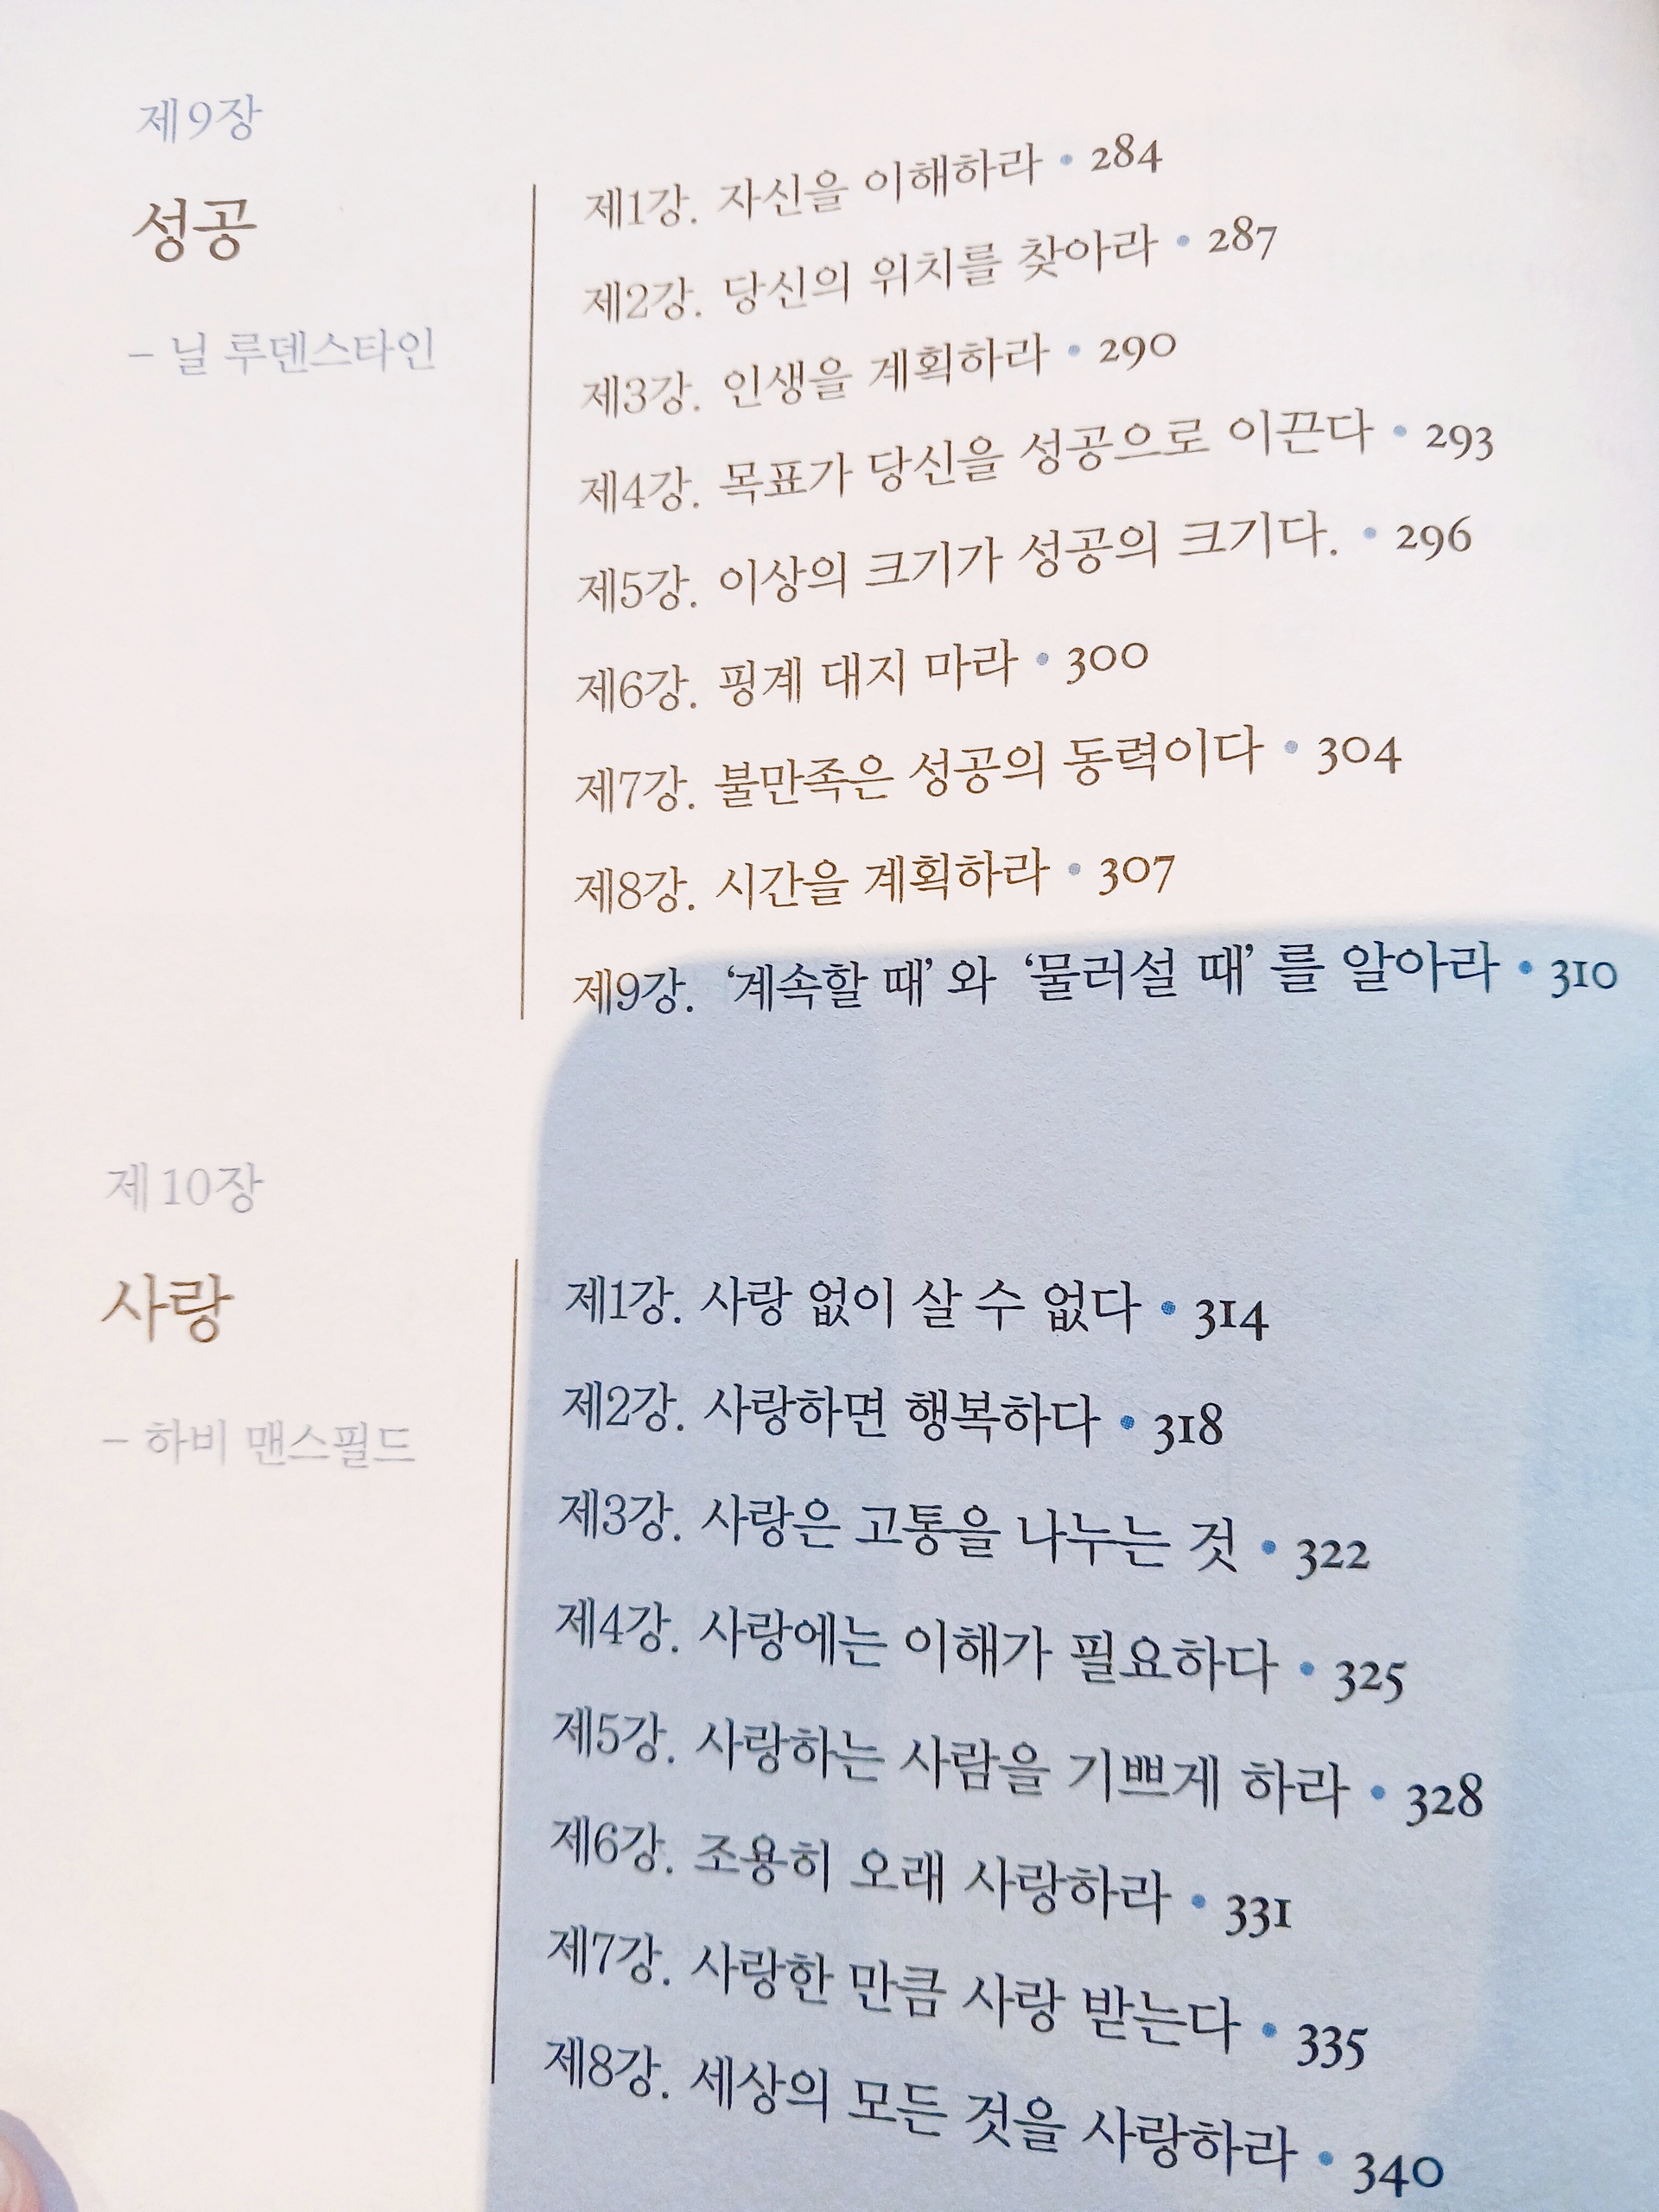 제9장
성공
– 닐 루덴스타인
제1강. 자신을 이해하라 • 284
제2강. 당신의 위치를 찾아라 • 287
제3강. 인생을 계획하라 • 290
제4강. 목표가 당신을 성공으로 이끈다 • 293
제5강. 이상의 크기가 성공의 크기다. • 296
제6강. 핑계 대지 마라 • 300
제7강. 불만족은 성공의 동력이다 • 304
제8강. 시간을 계획하라 • 307
제9강. ‘계속할 때’와 ‘물러설 때’를 알아라 • 310
제10장
사랑
– 하비 맨스필드
제1강. 사랑 없이 살 수 없다 • 314
제2강. 사랑하면 행복하다 • 318
제3강. 사랑은 고통을 나누는 것 • 322
제4강. 사랑에는 이해가 필요하다 • 325
제5강. 사랑하는 사람을 기쁘게 하라 • 328
제6강. 조용히 오래 사랑하라 • 331
제7강. 사랑한 만큼 사랑 받는다 • 335
제8강. 세상의 모든 것을 사랑하라 • 340